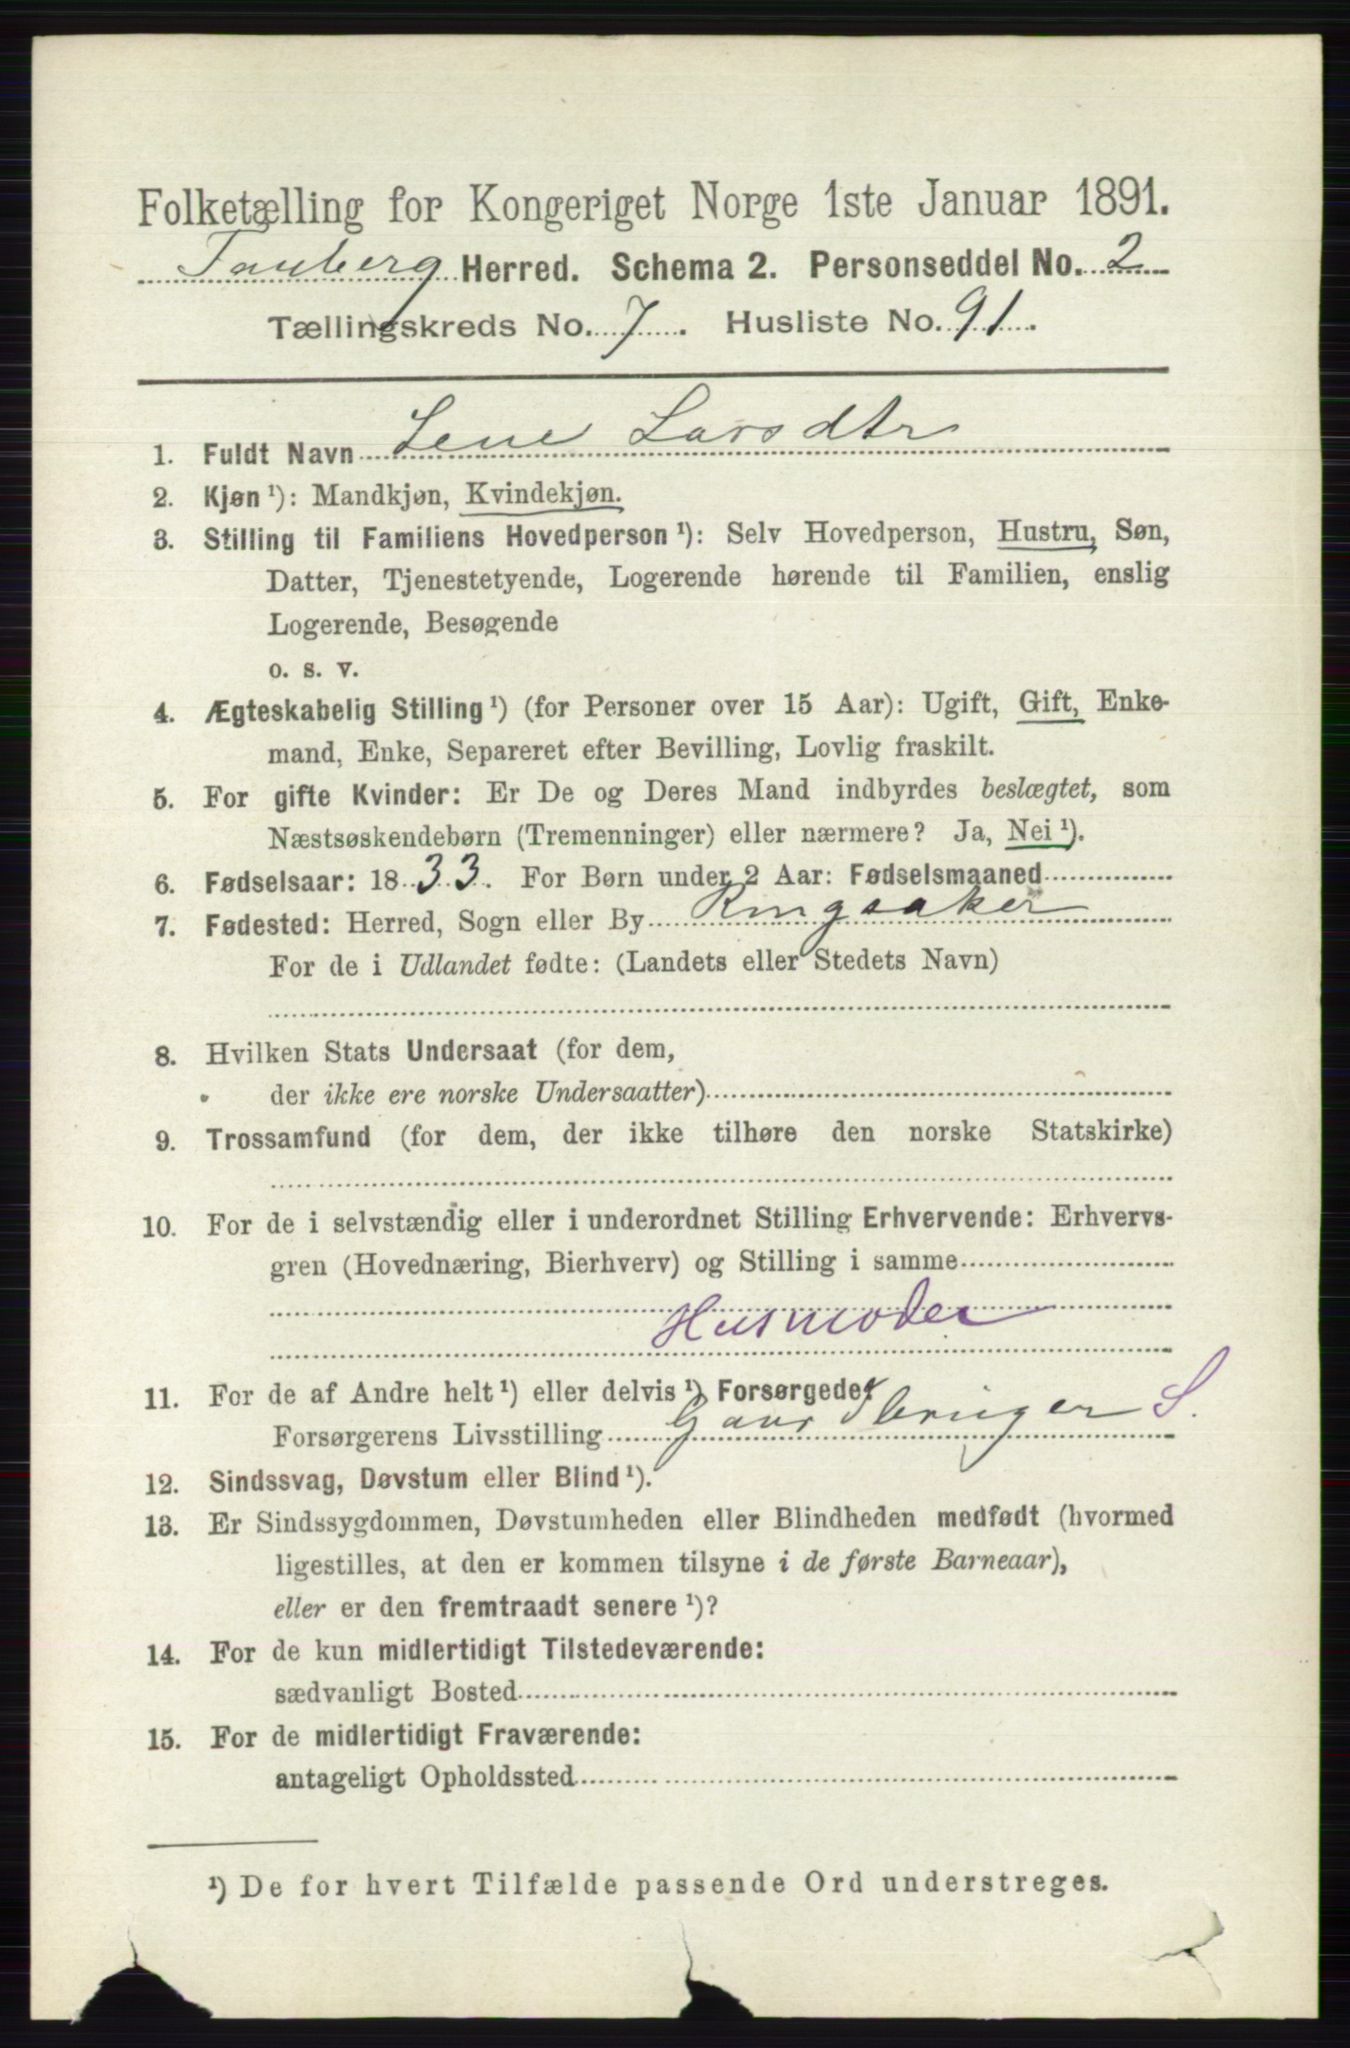 Folketælling for Kongeriget Norge 1ste Januar 1891.
Fauberg Herred. Schema 2. Personseddel No. 2
Tællingskreds No. 7. Husliste No. 91.
1. Fuldt Navn Lene Larsdtr
2. Kjøn ¹): Mandkjøn, Kvindekjøn.
3. Stilling til Familiens Hovedperson ¹): Selv Hovedperson, Hustru, Søn,
Datter, Tjenestetyende, Logerende hørende til Familien, enslig
Logerende, Besøgende
o. s. v.
4. Ægteskabelig Stilling ¹) (for Personer over 15 Aar): Ugift, Gift, Enke-
mand, Enke, Separeret efter Bevilling, Lovlig fraskilt.
5. For gifte Kvinder: Er De og Deres Mand indbyrdes beslægtet, som
Næstsøskendebørn (Tremenninger) eller nærmere? Ja, Nei ¹).
6. Fødselsaar: 1833. For Børn under 2 Aar: Fødselsmaaned
7. Fødested: Herred, Sogn eller By Ringsaker
For de i Udlandet fødte: (Landets eller Stedets Navn)
8. Hvilken Stats Undersaat (for dem,
der ikke ere norske Undersaatter)
9. Trossamfund (for dem, der ikke tilhøre den norske Statskirke)
10. For de i selvstændig eller i underordnet Stilling Erhvervende: Erhvervs-
gren (Hovednæring, Bierhverv) og Stilling i samme
Husmoder
11. For de af Andre helt ¹) eller delvis ¹) Forsørgede:
Forsørgerens Livsstilling Gaardbruger S.
12. Sindssvag, Døvstum eller Blind ¹).
13. Er Sindssygdommen, Døvstumheden eller Blindheden medfødt (hvormed
ligestilles, at den er kommen tilsyne i de første Barneaar),
eller er den fremtraadt senere ¹)?
14. For de kun midlertidigt Tilstedeværende:
sædvanligt Bosted
15. For de midlertidigt Fraværende:
antageligt Opholdssted
¹) De for hvert Tilfælde passende Ord understreges.